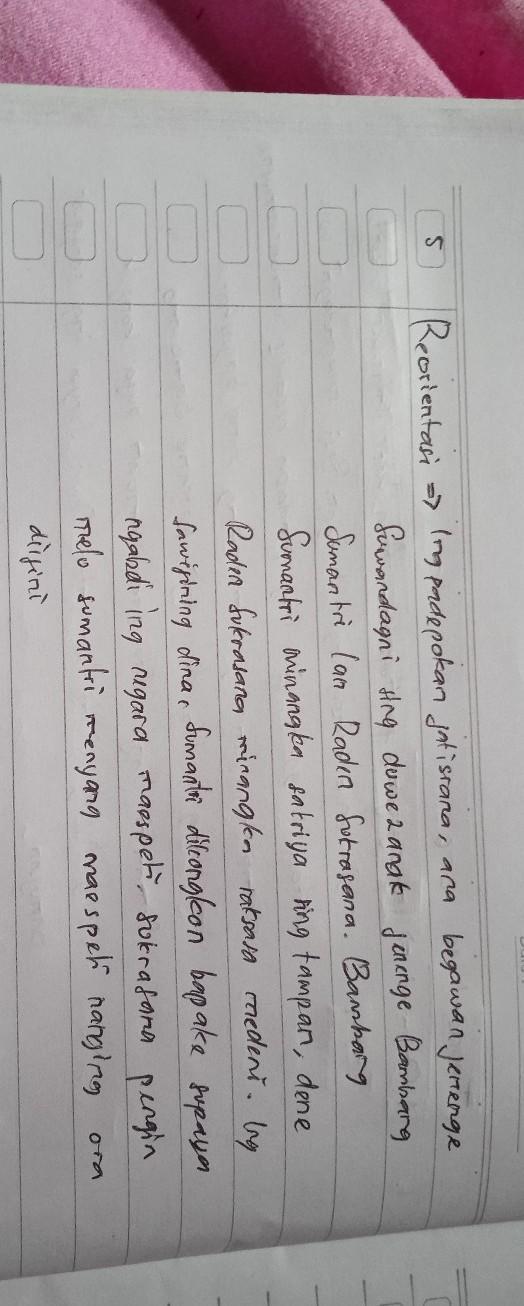 5 Reorientasi => Ing padepokan jatisrana, ana begawan jenenge
Suwandagni sing duwe 2 anak jenenge Bambang
Sumantri lan Radin Sukrasana. Bambang
Sumantri minangka satriya sing tampan, dene
Radin Sukrasana minangka raksasa medeni. Ing
Sawijining dina, Sumantri dikongkon bapake supaya
ngabdi ing negara maespati. Sukrasana pengin
melo sumantri menyang maespati nanging ora
diijini